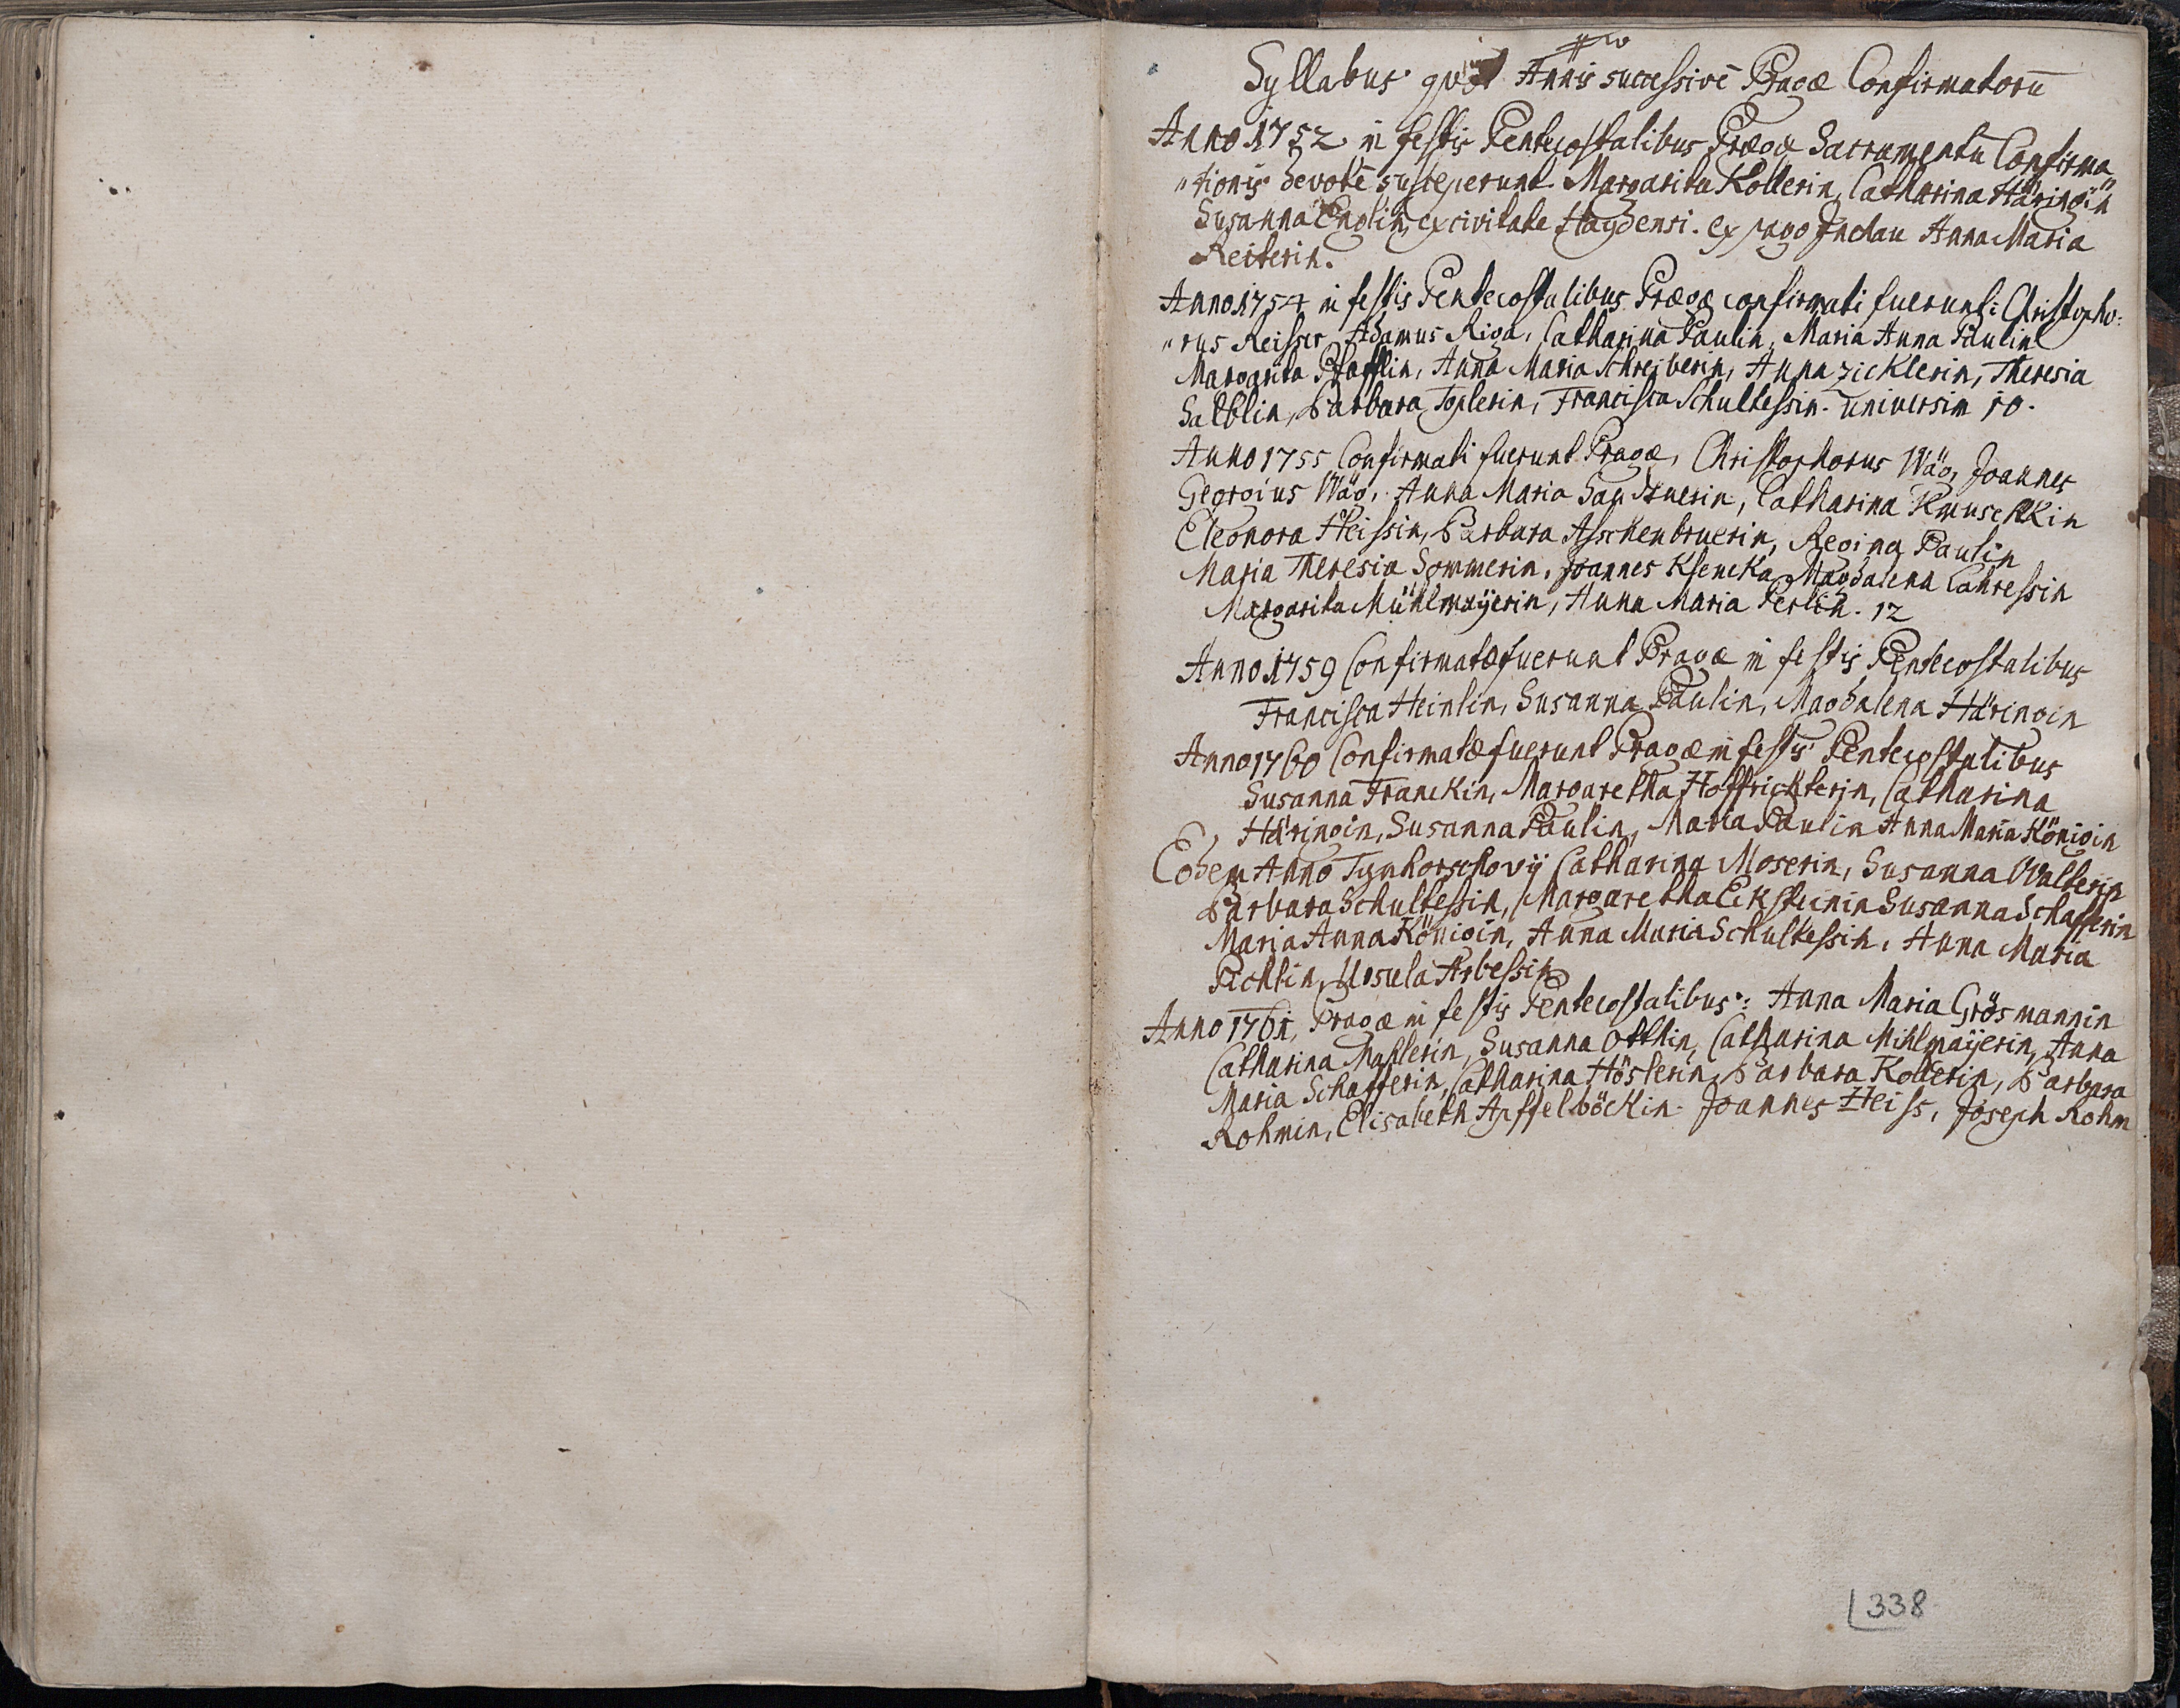 Syllabus quot Annis successivè Pragæ Confirmatorū
Anno 1752 in festis Pentecostalibus Pragæ Sacramentū Confirma
"tionis devotè susceperunt Margarita Kollerin, Catharina Häringin
Susanna Englin, ex civitate Haydensi. ex pago Inchau Anna Maria
Reiterin.
Anno 1754 in festis Pentecostalibus Pragæ confirmati fuerunt: Christopho:
"rus Reisser, Adamus Riga, Catharina Paulin, Maria Anna Paulin
Margarita Pfafflin, Anna Maria Schreiberin, Anna Zicklerin, Theresia
Salblin, Barbara Toplerin, Francisca Schultessin. universim 10.
Anno 1755 Confirmati fuerunt Pragæ, Christophorus Wäg, Joannes
Georgius Wäg, Anna Maria Sandtnerin, Catharina Kmuschkin
Eleonora Heissin, Barbara Aschenbruerin, Regina Paulin
Maria Theresia Sommerin, Joannes Ksencka, Magdalena Lahressin
Margarita Mühlmaÿerin, Anna Maria Perlin. 12
Anno 1759 Confirmatæ fuerunt Pragæ in festis Pentecostalibus
Francisca Heinlin, Susanna Paulin, Magdalena Häringin
Anno 1760 Confirmatæ fuerunt Pragæ in festis Pentecostalibus
Susanna Franckin, Margaretha Hoffrichterin, Catharina
Häringin, Susanna Paulin, Maria Paulin Anna Maria Königin
Eodem Anno Tynhorschovÿ Catharina Moserin, Susanna Walterin
Barbara Schultessin, Margaretha Eksteinin Susanna Schafferin
Maria Anna Königin, Anna Maria Schultessin, Anna Maria
Pichlin, Ursula Arbessin
Anno 1761, Pragæ in festis Pentecostalibus: Anna Maria Grösmannin
Catharina Mahlerin, Susanna Otthin, Catharina Mihlmaÿerin, Anna
Maria Schafferin, Catharina Höslerin, Barbara Kollerin, Barbara
Rohmin, Elisabeth Apffelböckin. Joannes Heiss, Joseph Rohm
338